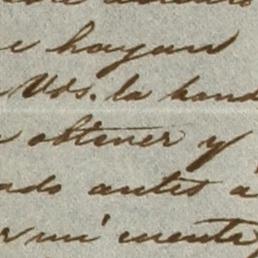 e hayan
Uds. la bond
obtener y
ado antes á
r mi cuenta